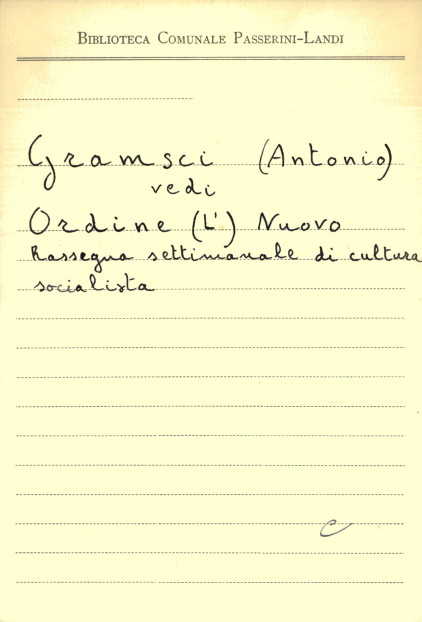 BIBLIOTECA COMUNALE PASSERINI-LANDI
Gramsci (Antonio)
vedi
Ordine (L') Nuovo
Rassegna settimanale di cultura
socialista
C